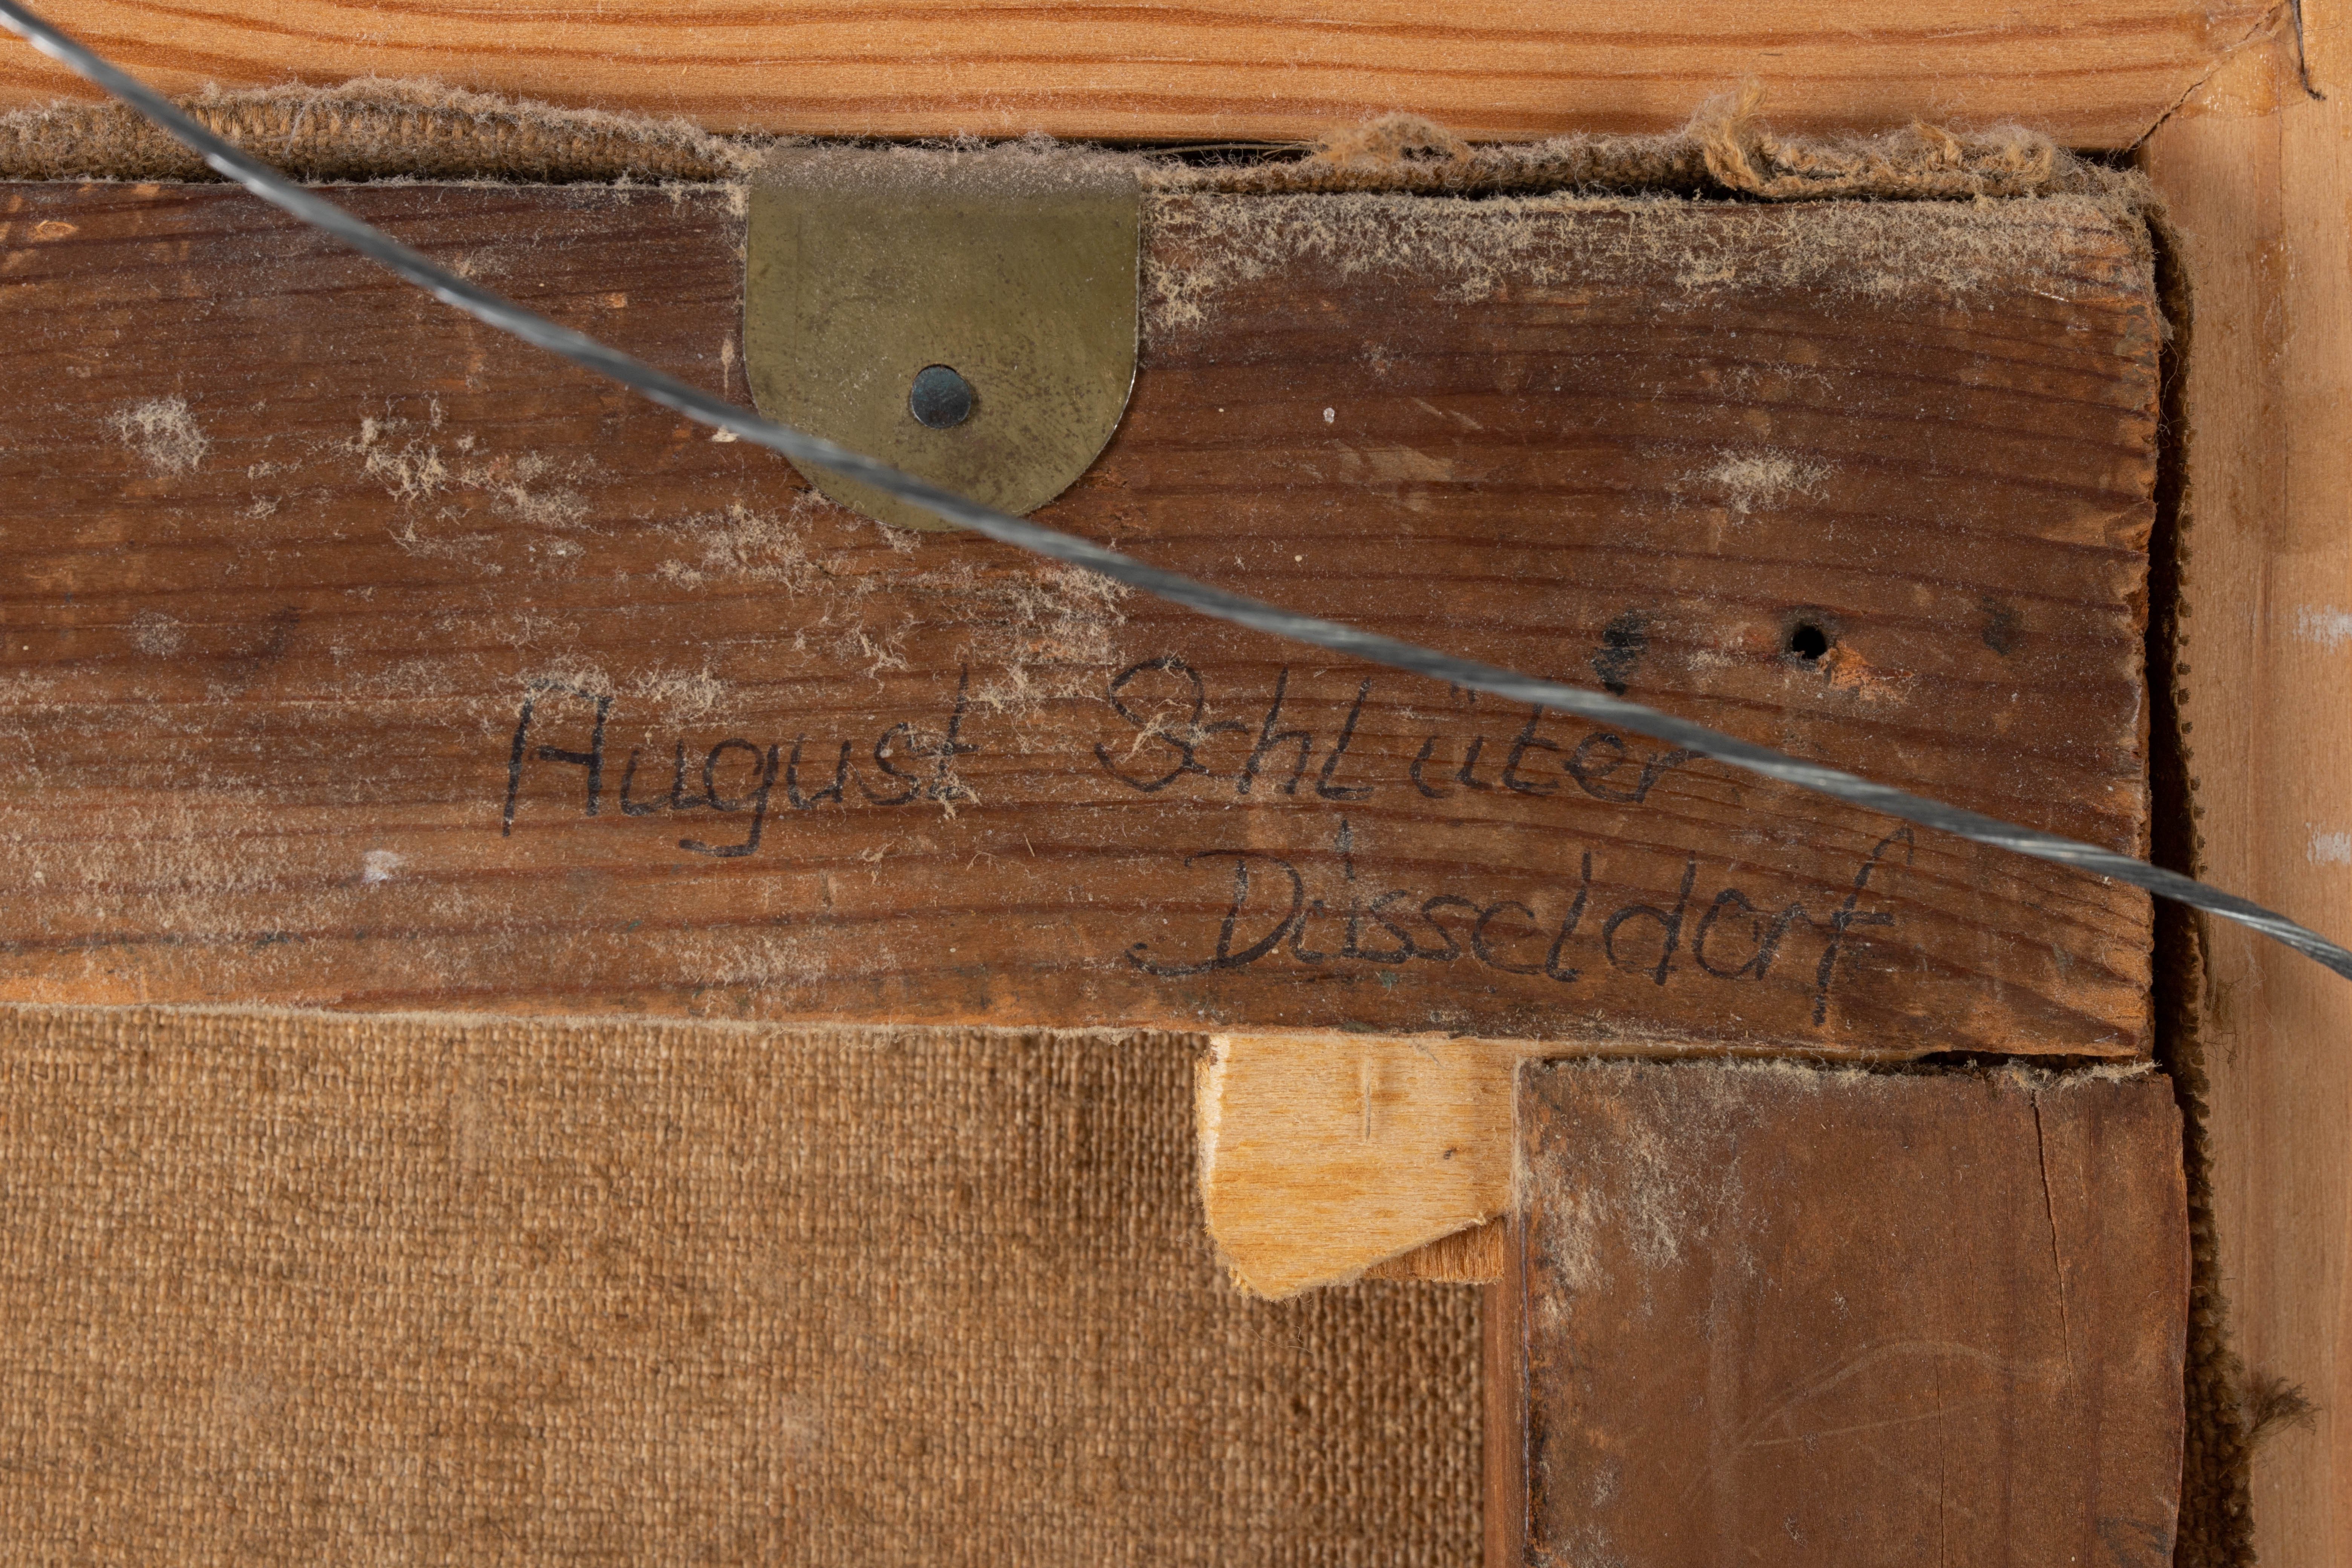 August Schlüter
Düsseldorf